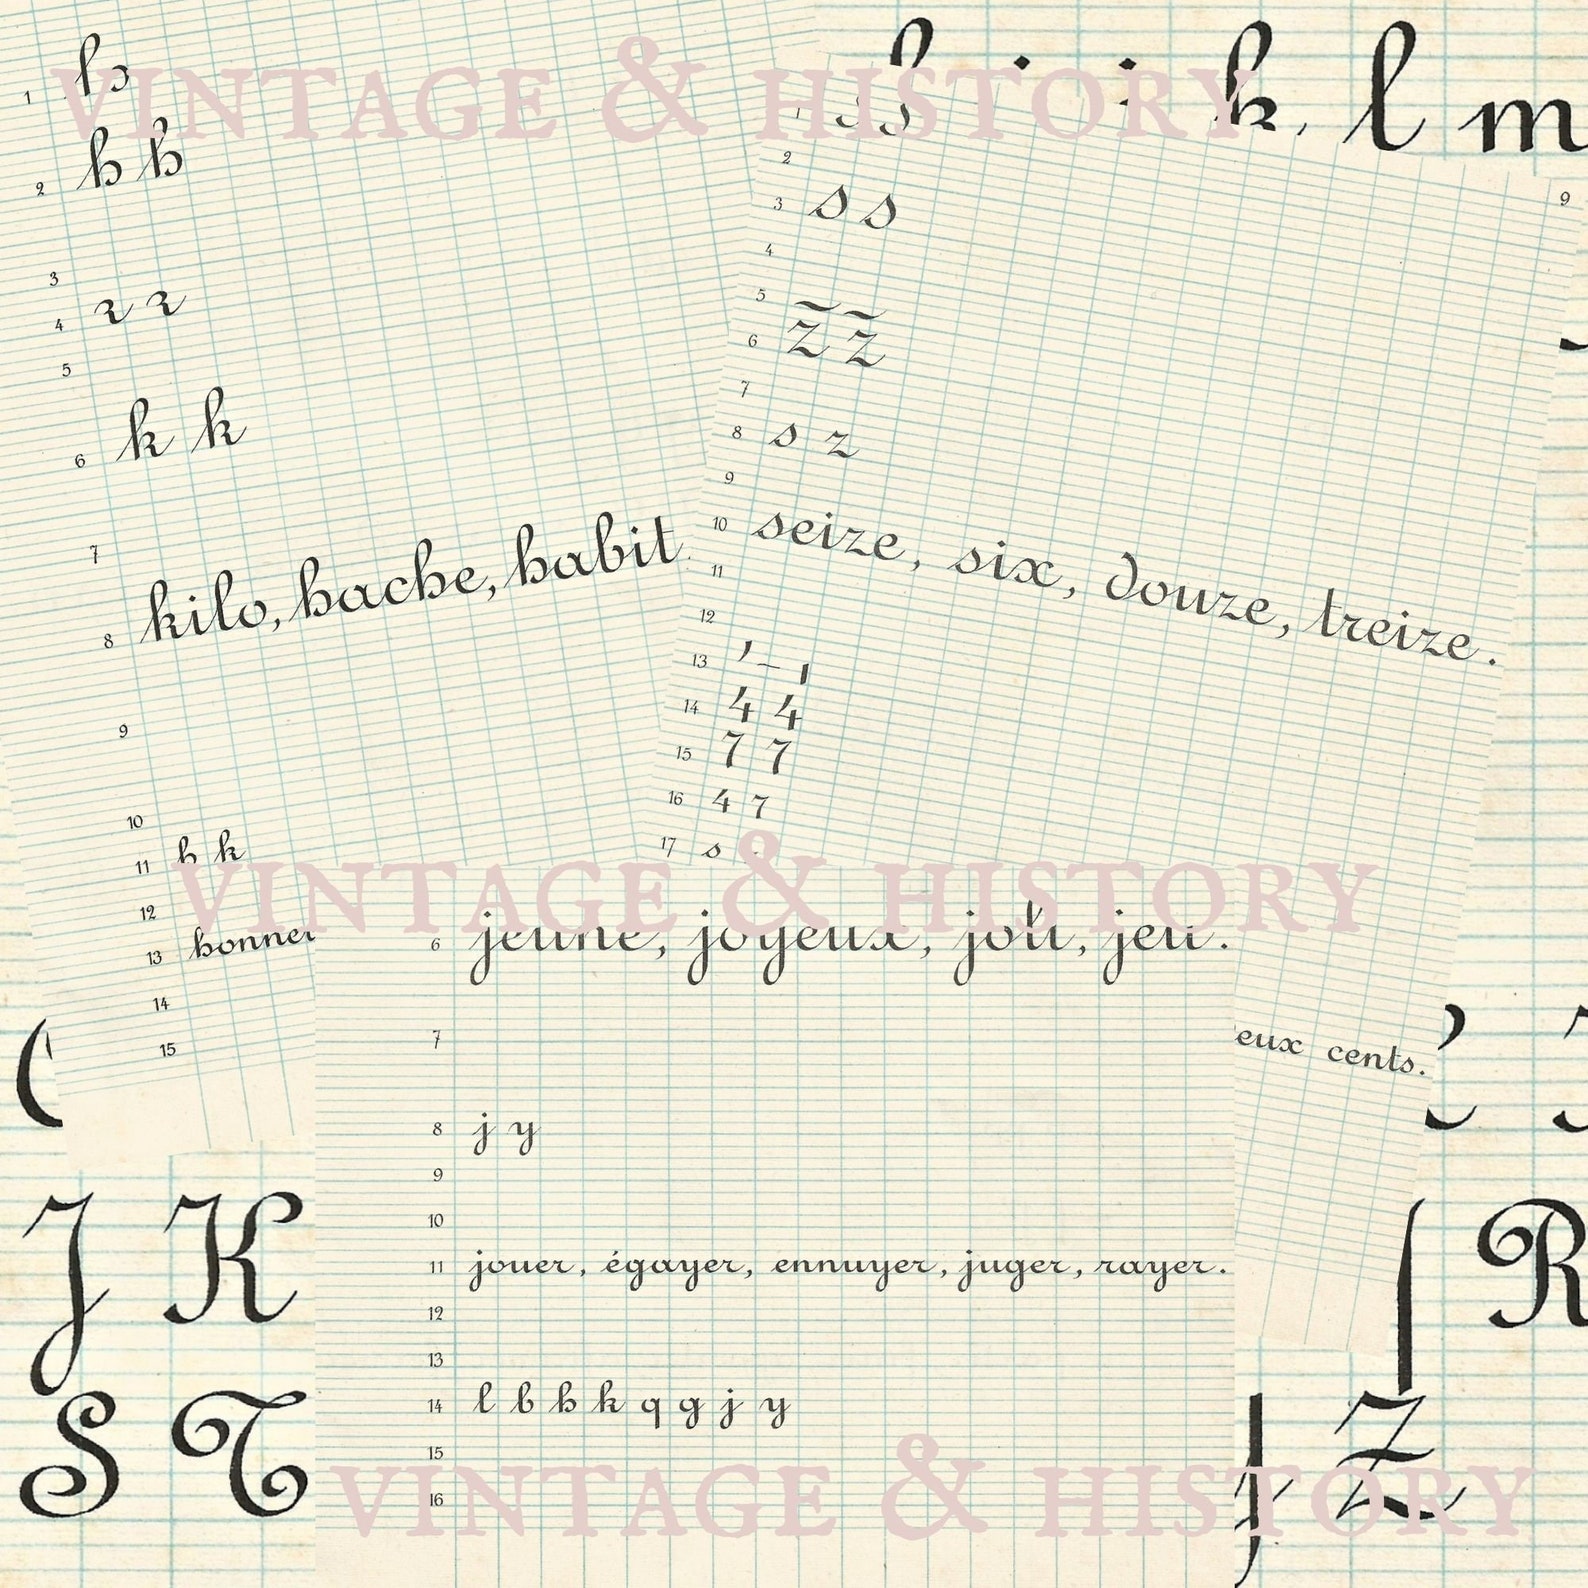 VINTAGE & HISTORY
1 h
2 h h
3
4 r r
5
6 k k
7
8 kilo, hache, habit
9
10
11 h k
12
13 honner
14
15
k, l m
9
1
2
3 s s
4
5
6 z z
7
8 s z
9
10 seize, six, douze, treize.
11
12
13
14 4 4
15 7 7
16 4 7
17 s
eux cents.
VINTAGE & HISTORY
6 jeune, joyeux, joli, jeu.
7
8 j y
9
10
11 jouer, égayer, ennuyer, juger, rayer.
12
13
14 l b h k q g j y
15
16
J K
R
S T
Z
VINTAGE & HISTORY